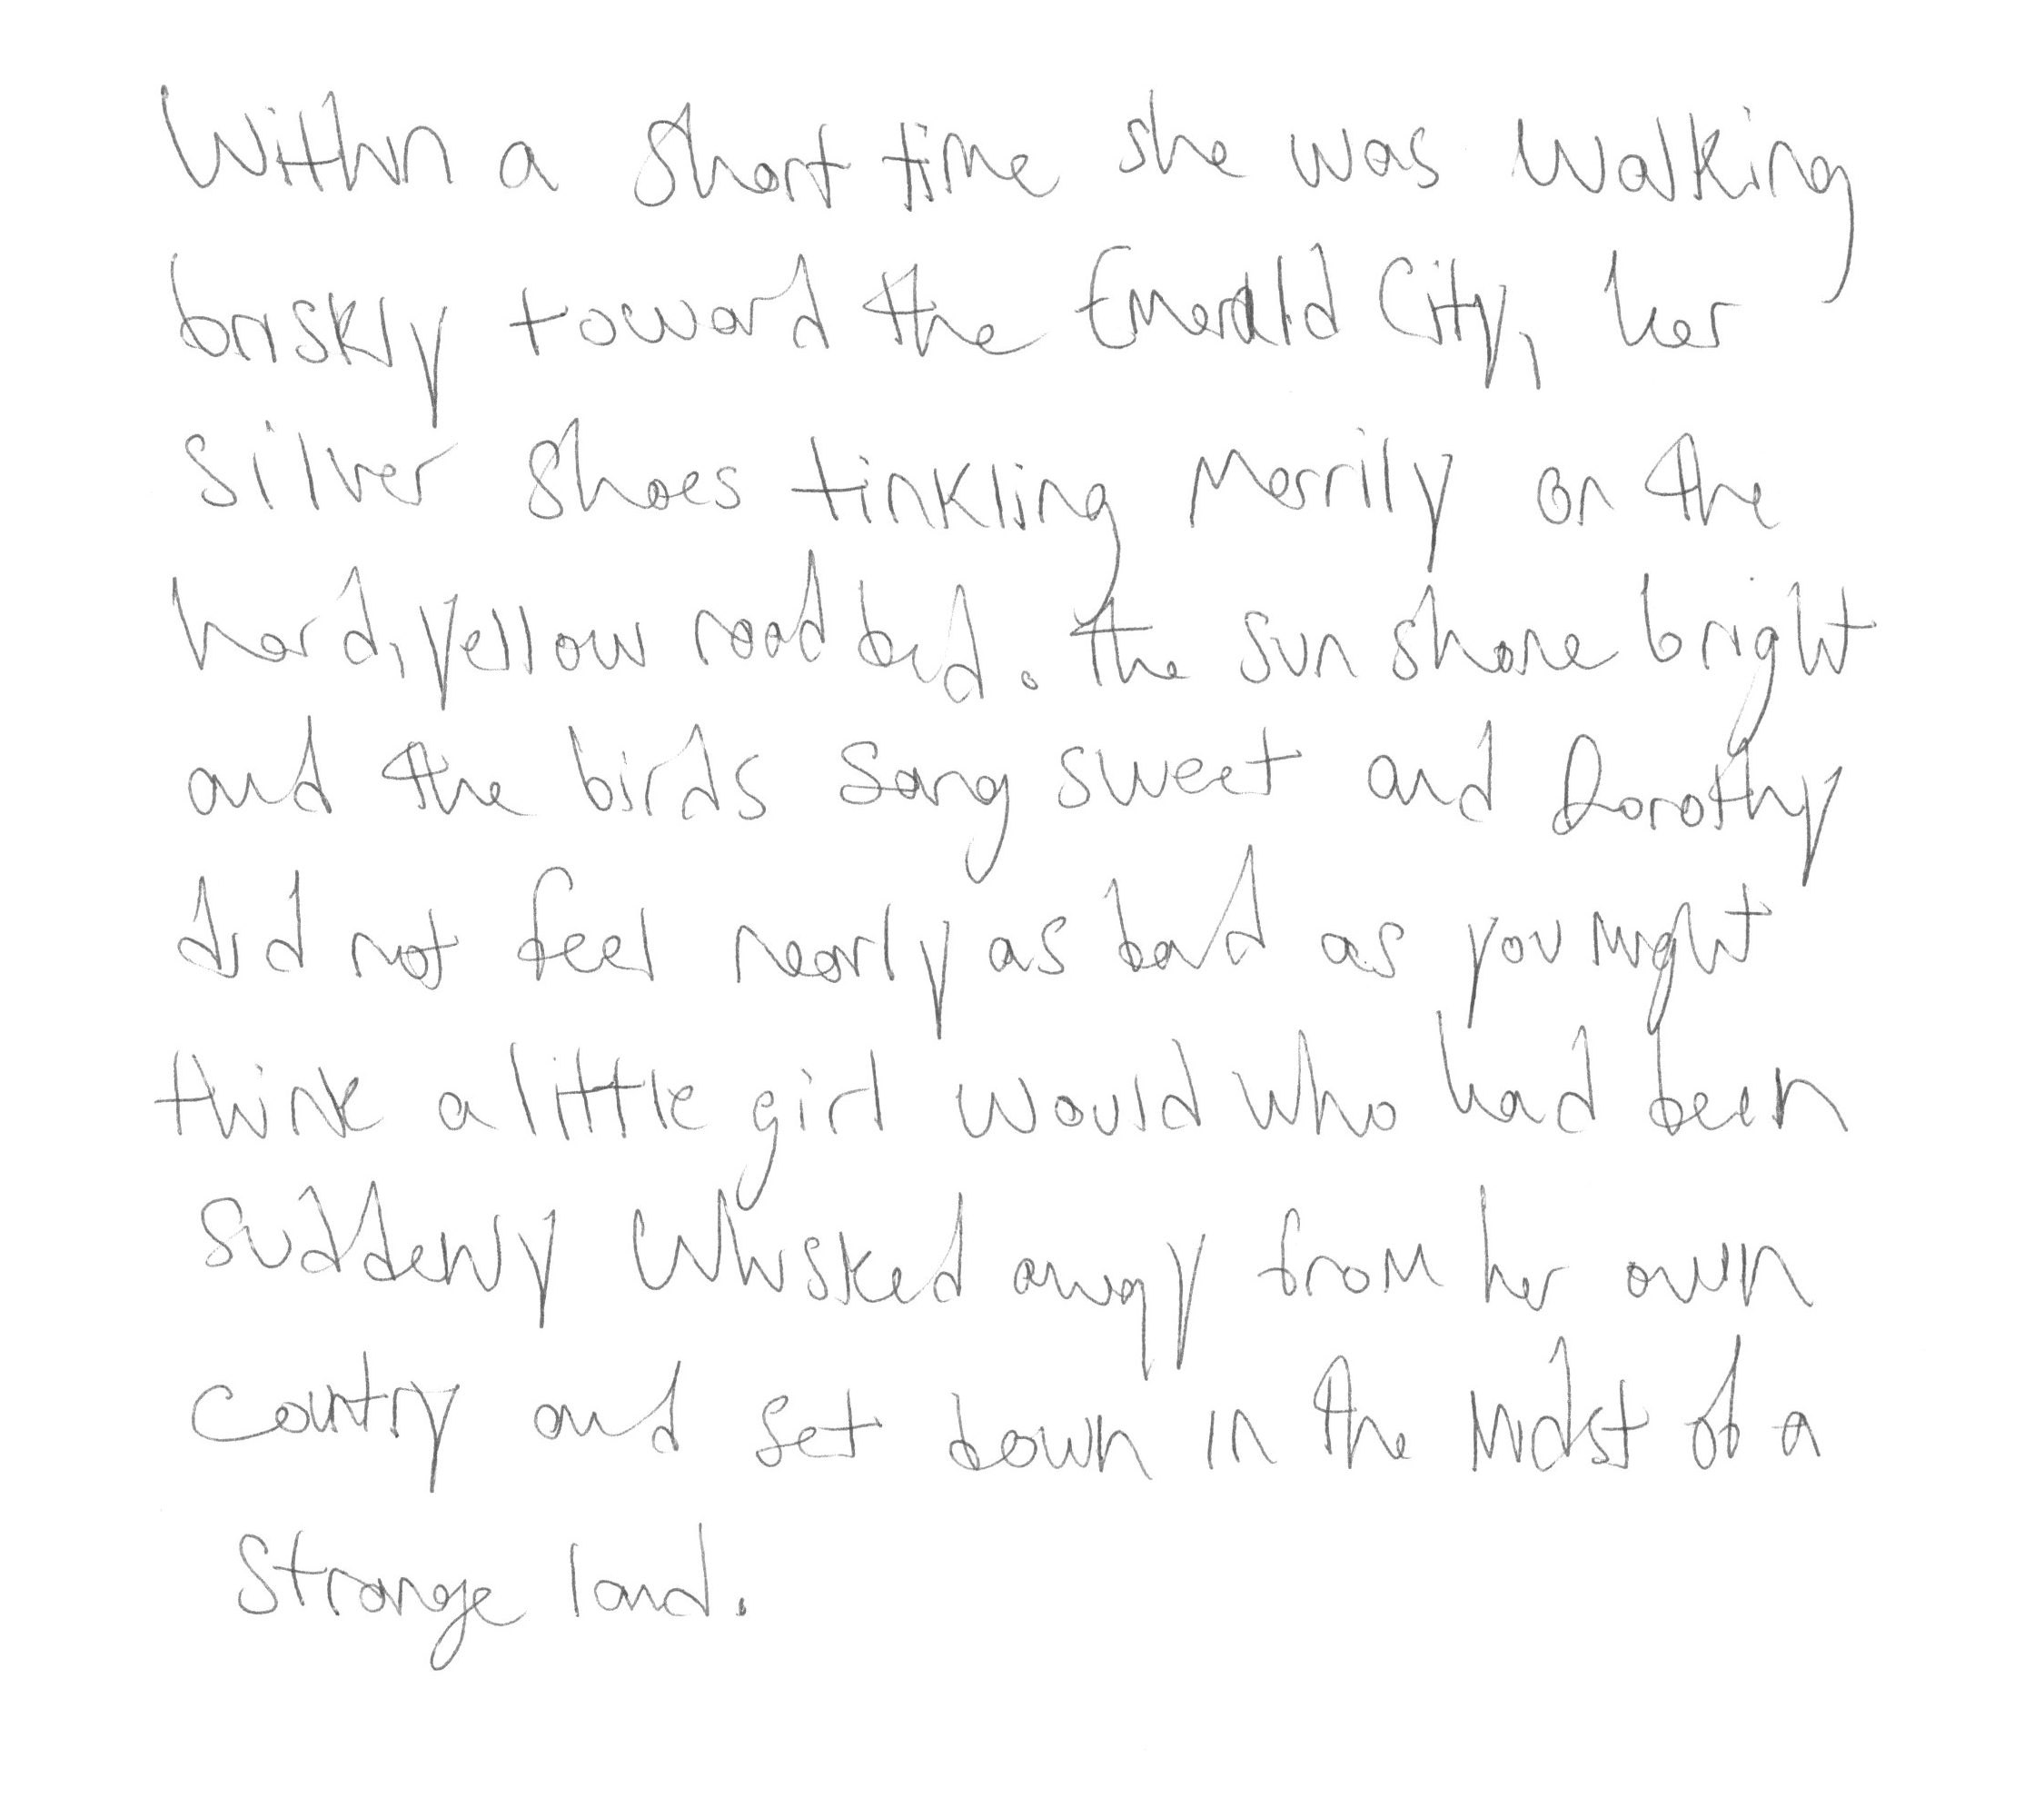 Within a short time she was walking
briskly toward the Emerald City, her
silver shoes tinkling merrily on the
hard, yellow road bed. The sun shone bright
and the birds sang sweet and Dorothy
did not feel nearly as bad as you might
think a little girl would who had been
suddenly whisked away from her own
country and set down in the midst of a
strange land.